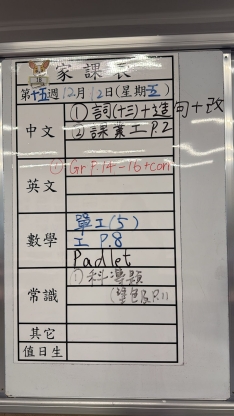 家課表
第十五週12月12日(星期五)
中文
① 詞(十三)+造句+改
② 課業工 P.2
英文
① Gr P.14-16+corr
數學
單工(5)
工 P.8
Padlet
常識
① 科專題
P.1)
其它
值日生